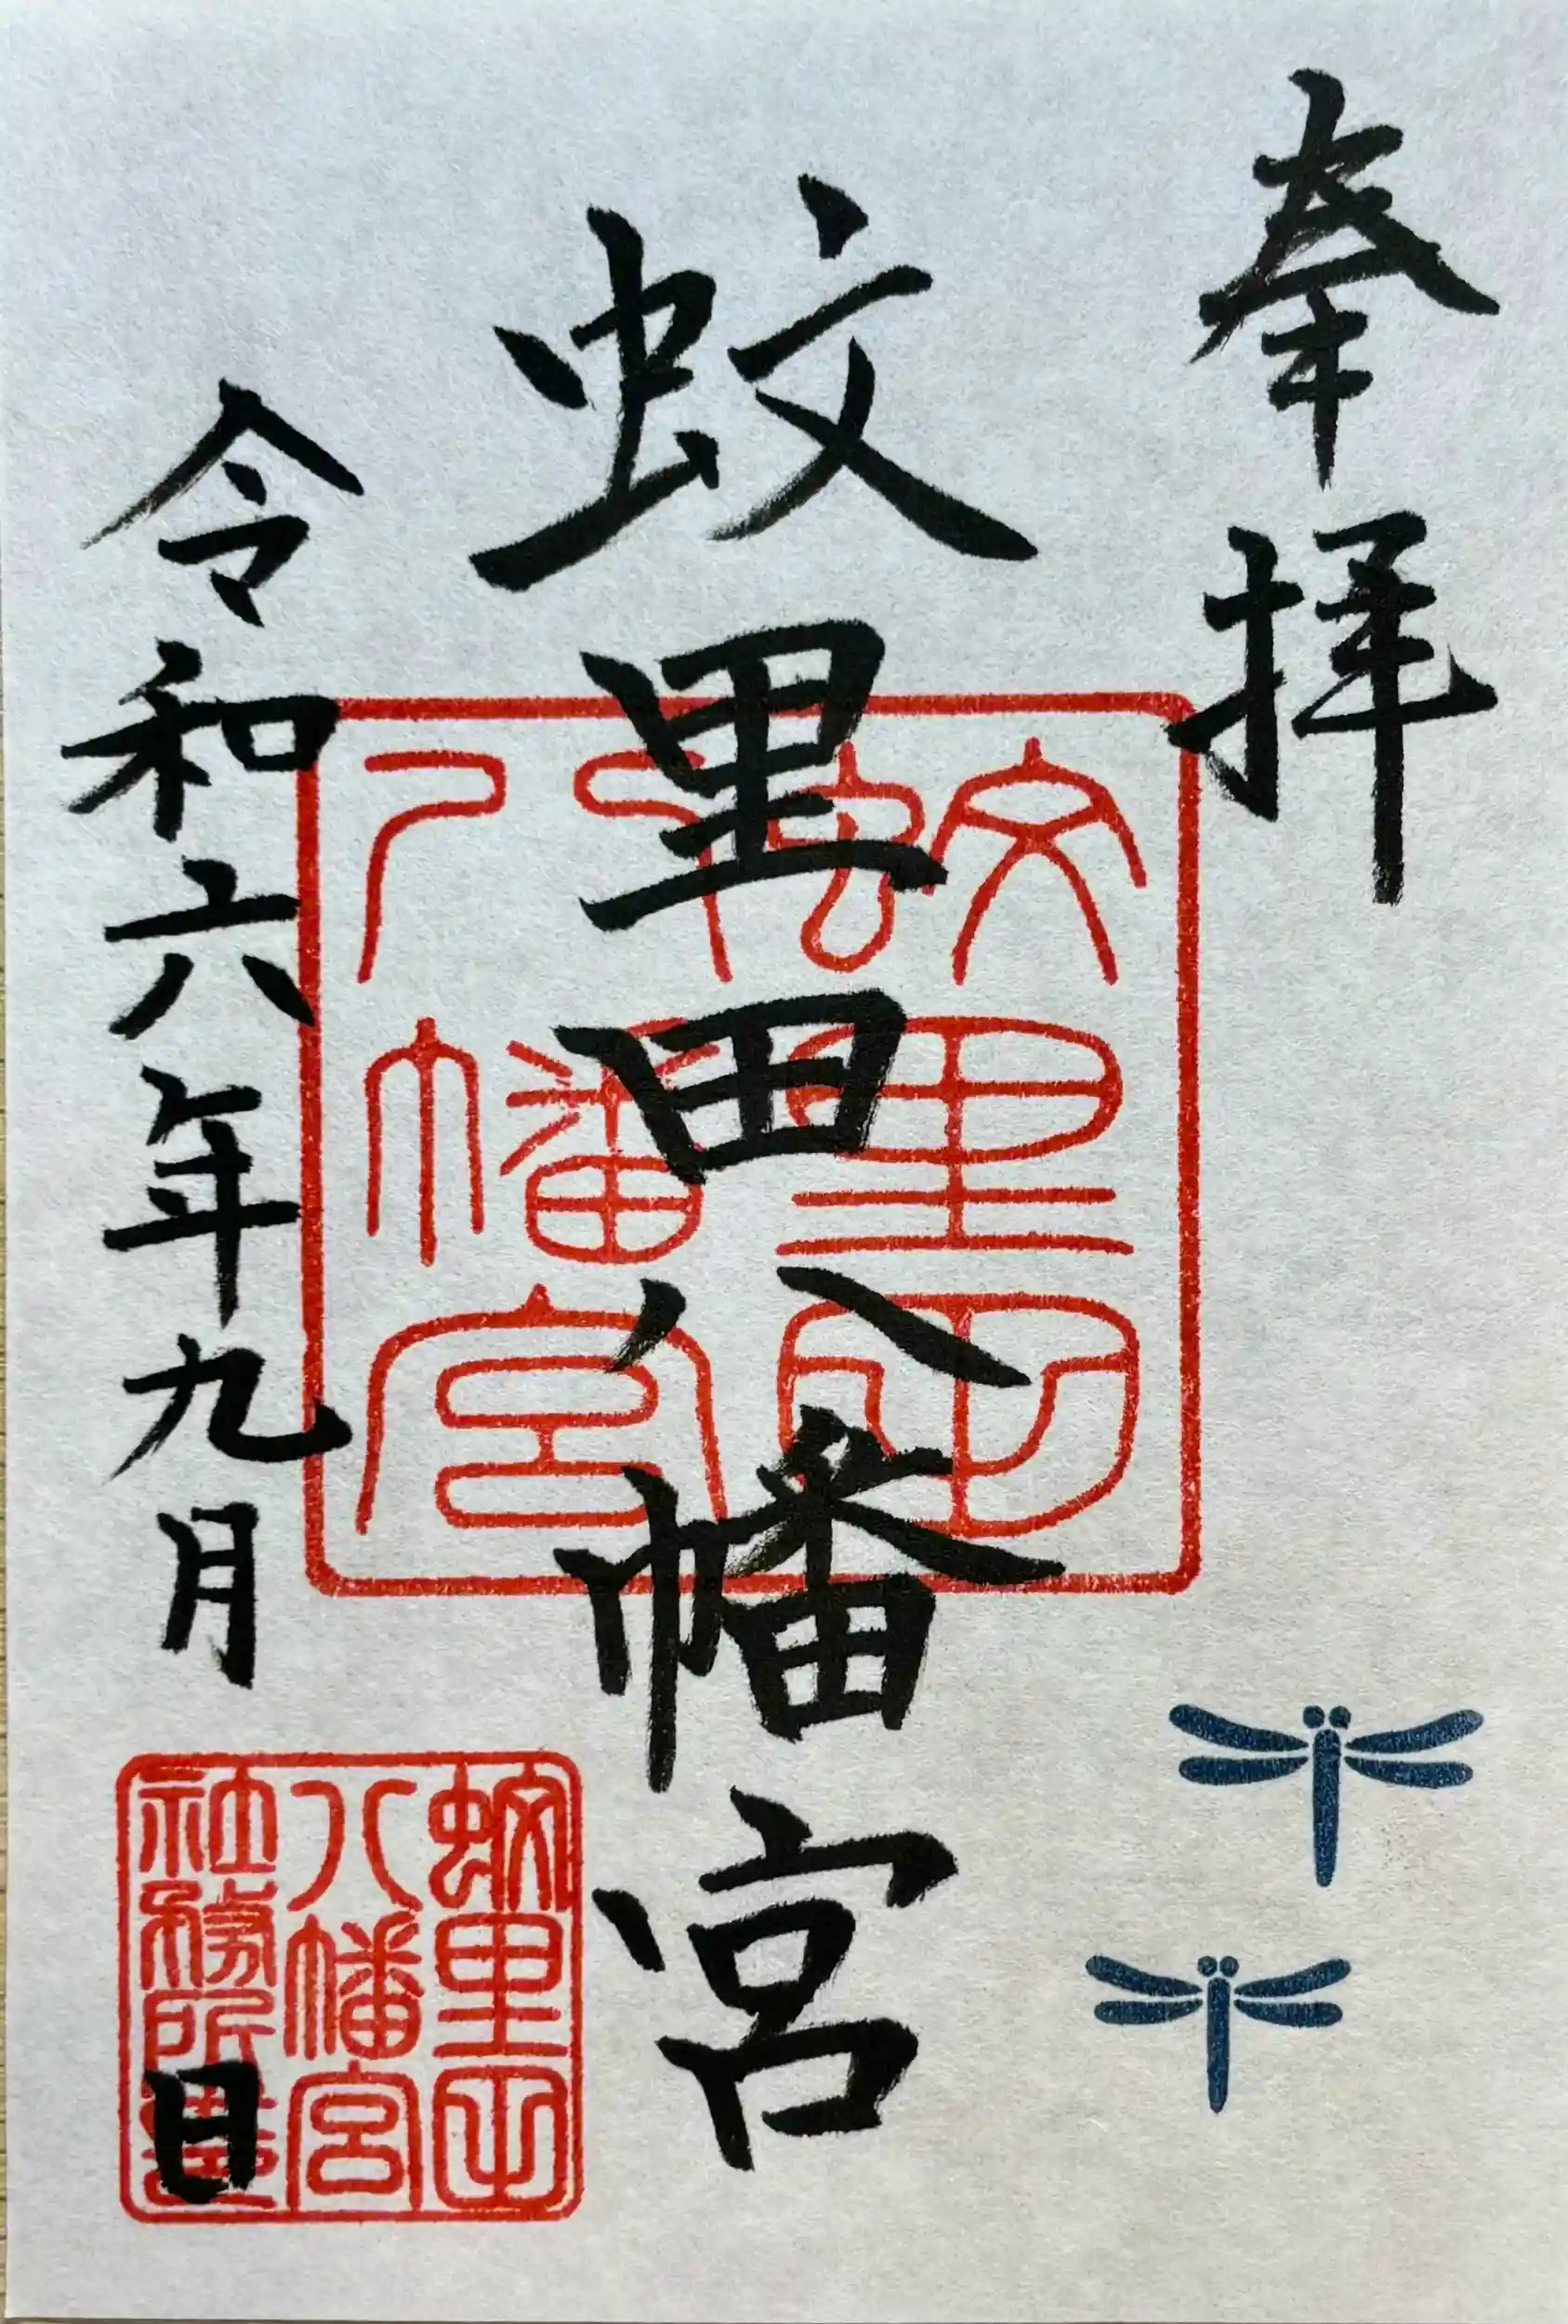 奉拝
蚊里田八幡宮
令和六年九月日
蚊里田
八幡宮
蚊里田
八幡宮
社務所